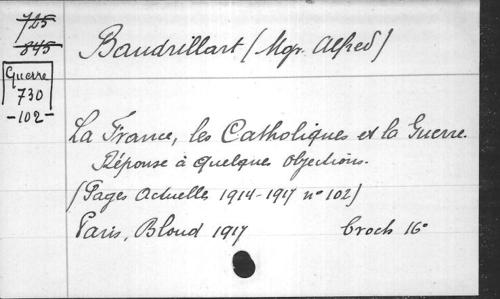 765
845
Guerre
730
-102-
Baudrillart (Mgr. Alfred)
La France, les Catholiques et la Guerre.
Réponse à quelques objections.
(Pages Actuelles 1914-1917 n° 102)
Paris, Bloud 1917 broch 16°